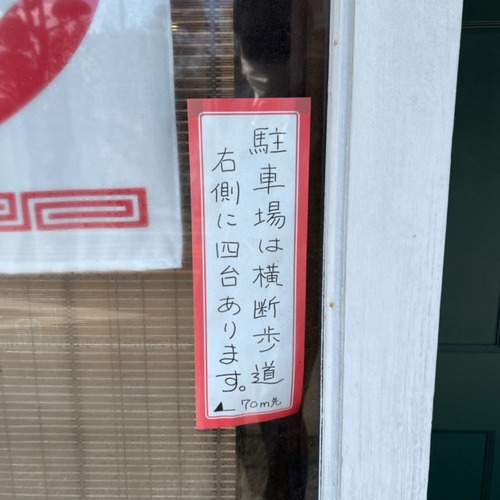 駐車場は横断歩道
右側に四台あります。
70m先